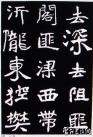 去深去阻匪
閣匪梁西帶
汧隴東控樊